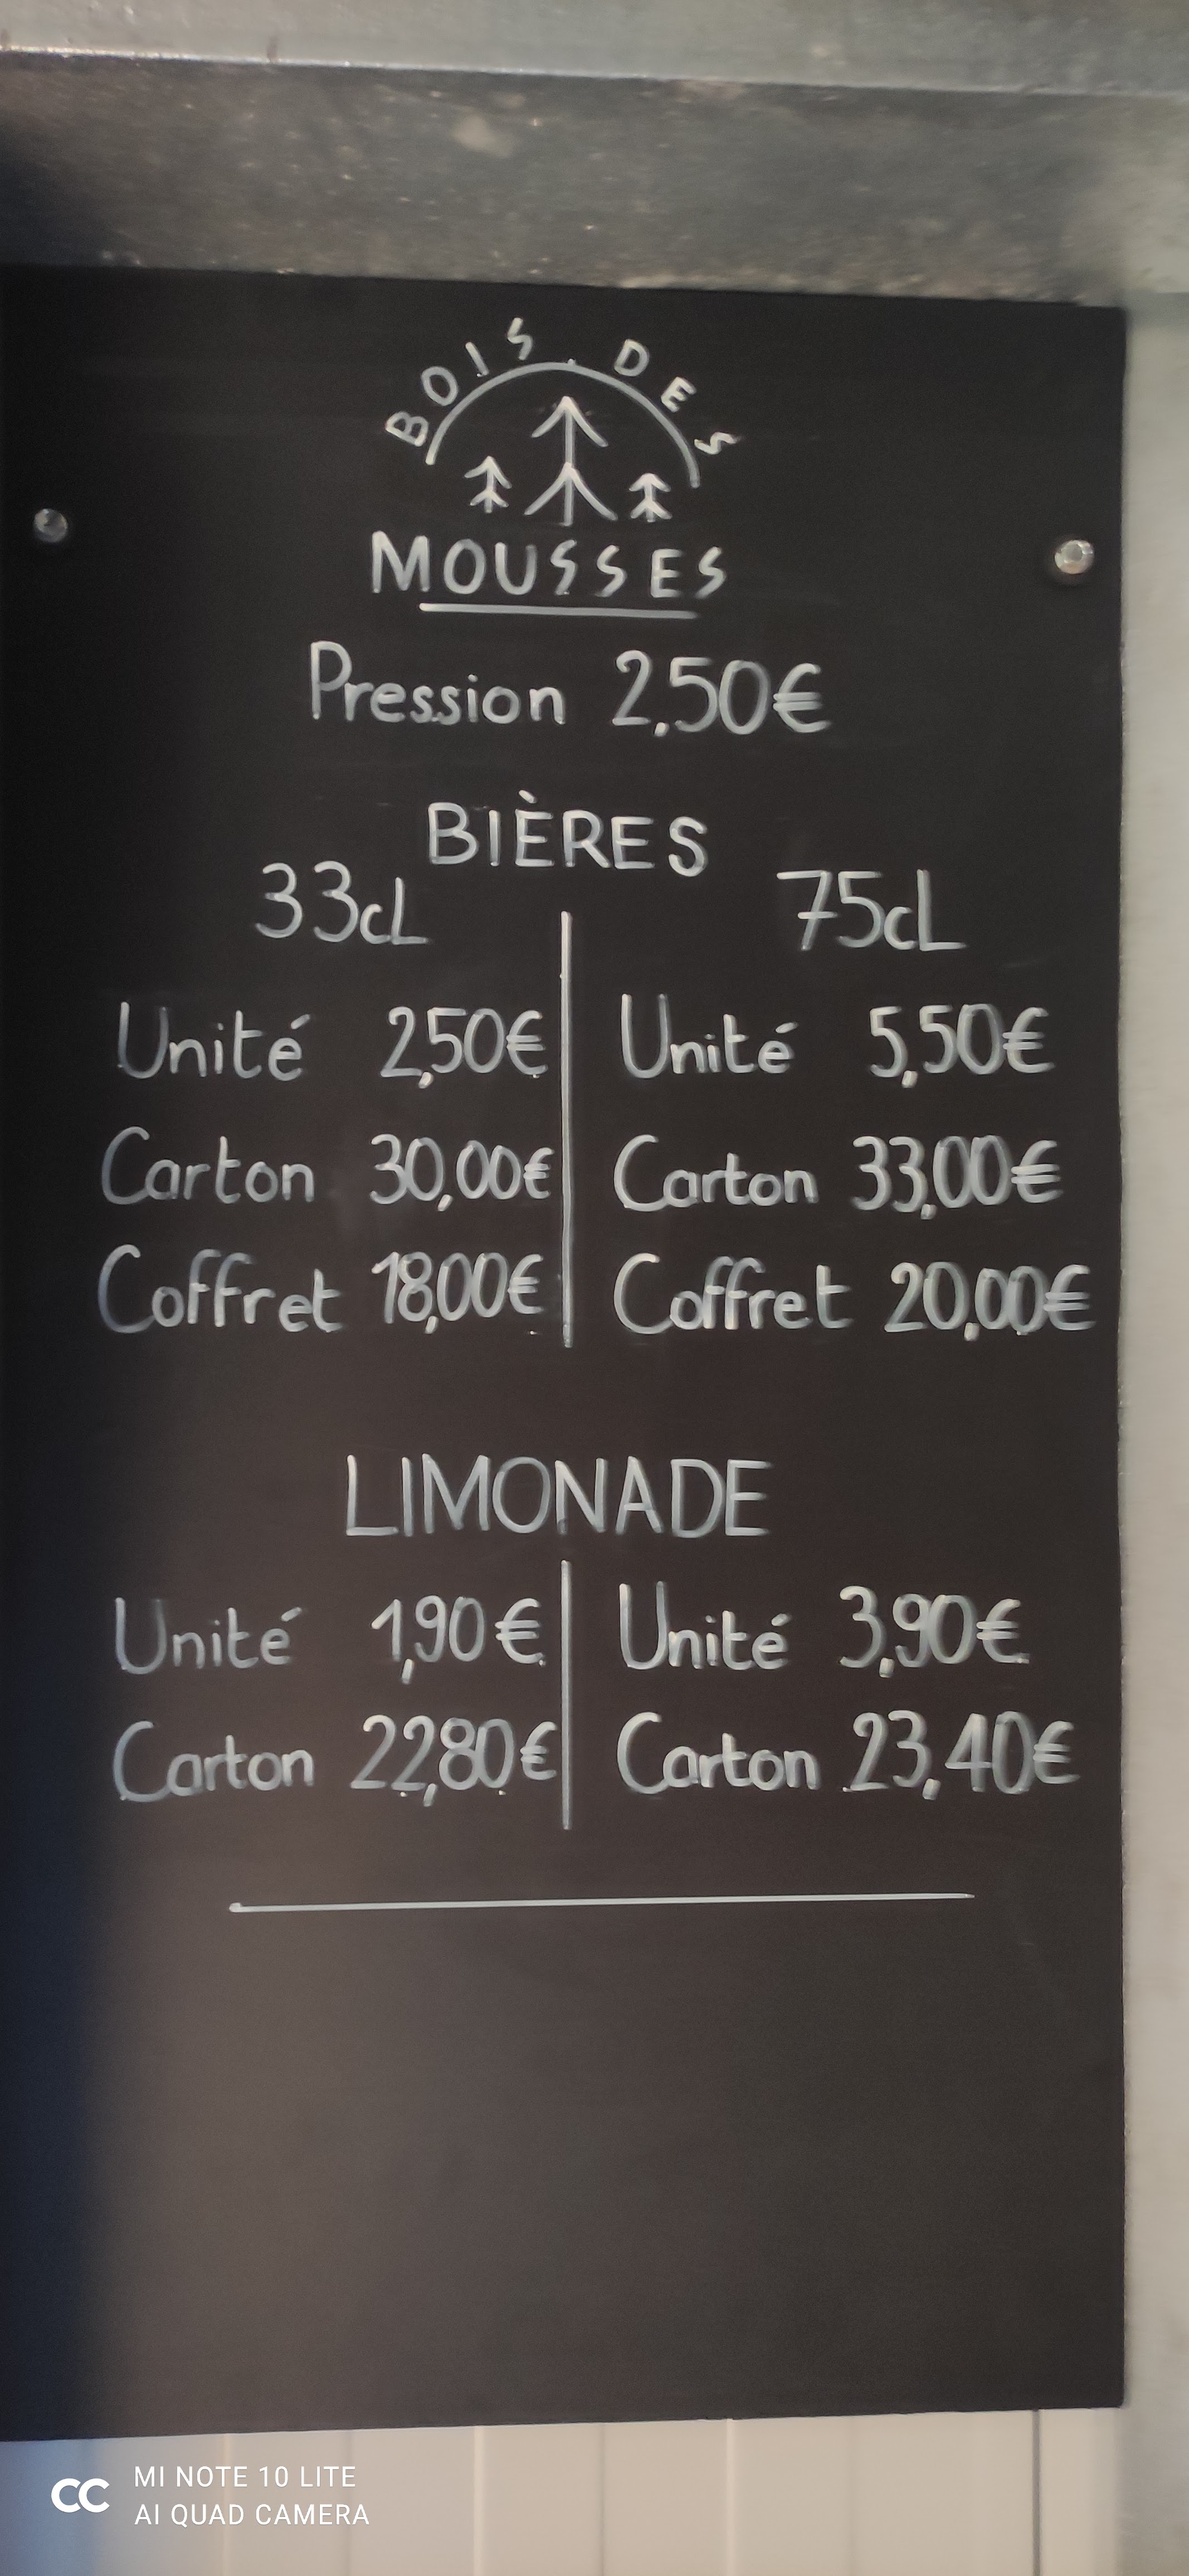 BOIS DES
MOUSSES
Pression 2,50€
BIÈRES
33cL 75cL
Unité 2,50€ Unité 5,50€
Carton 30,00€ Carton 33,00€
Coffret 18,00€ Coffret 20,00€
LIMONADE
Unité 1,90€ Unité 3,90€
Carton 22,80€ Carton 23,40€
MI NOTE 10 LITE
AI QUAD CAMERA